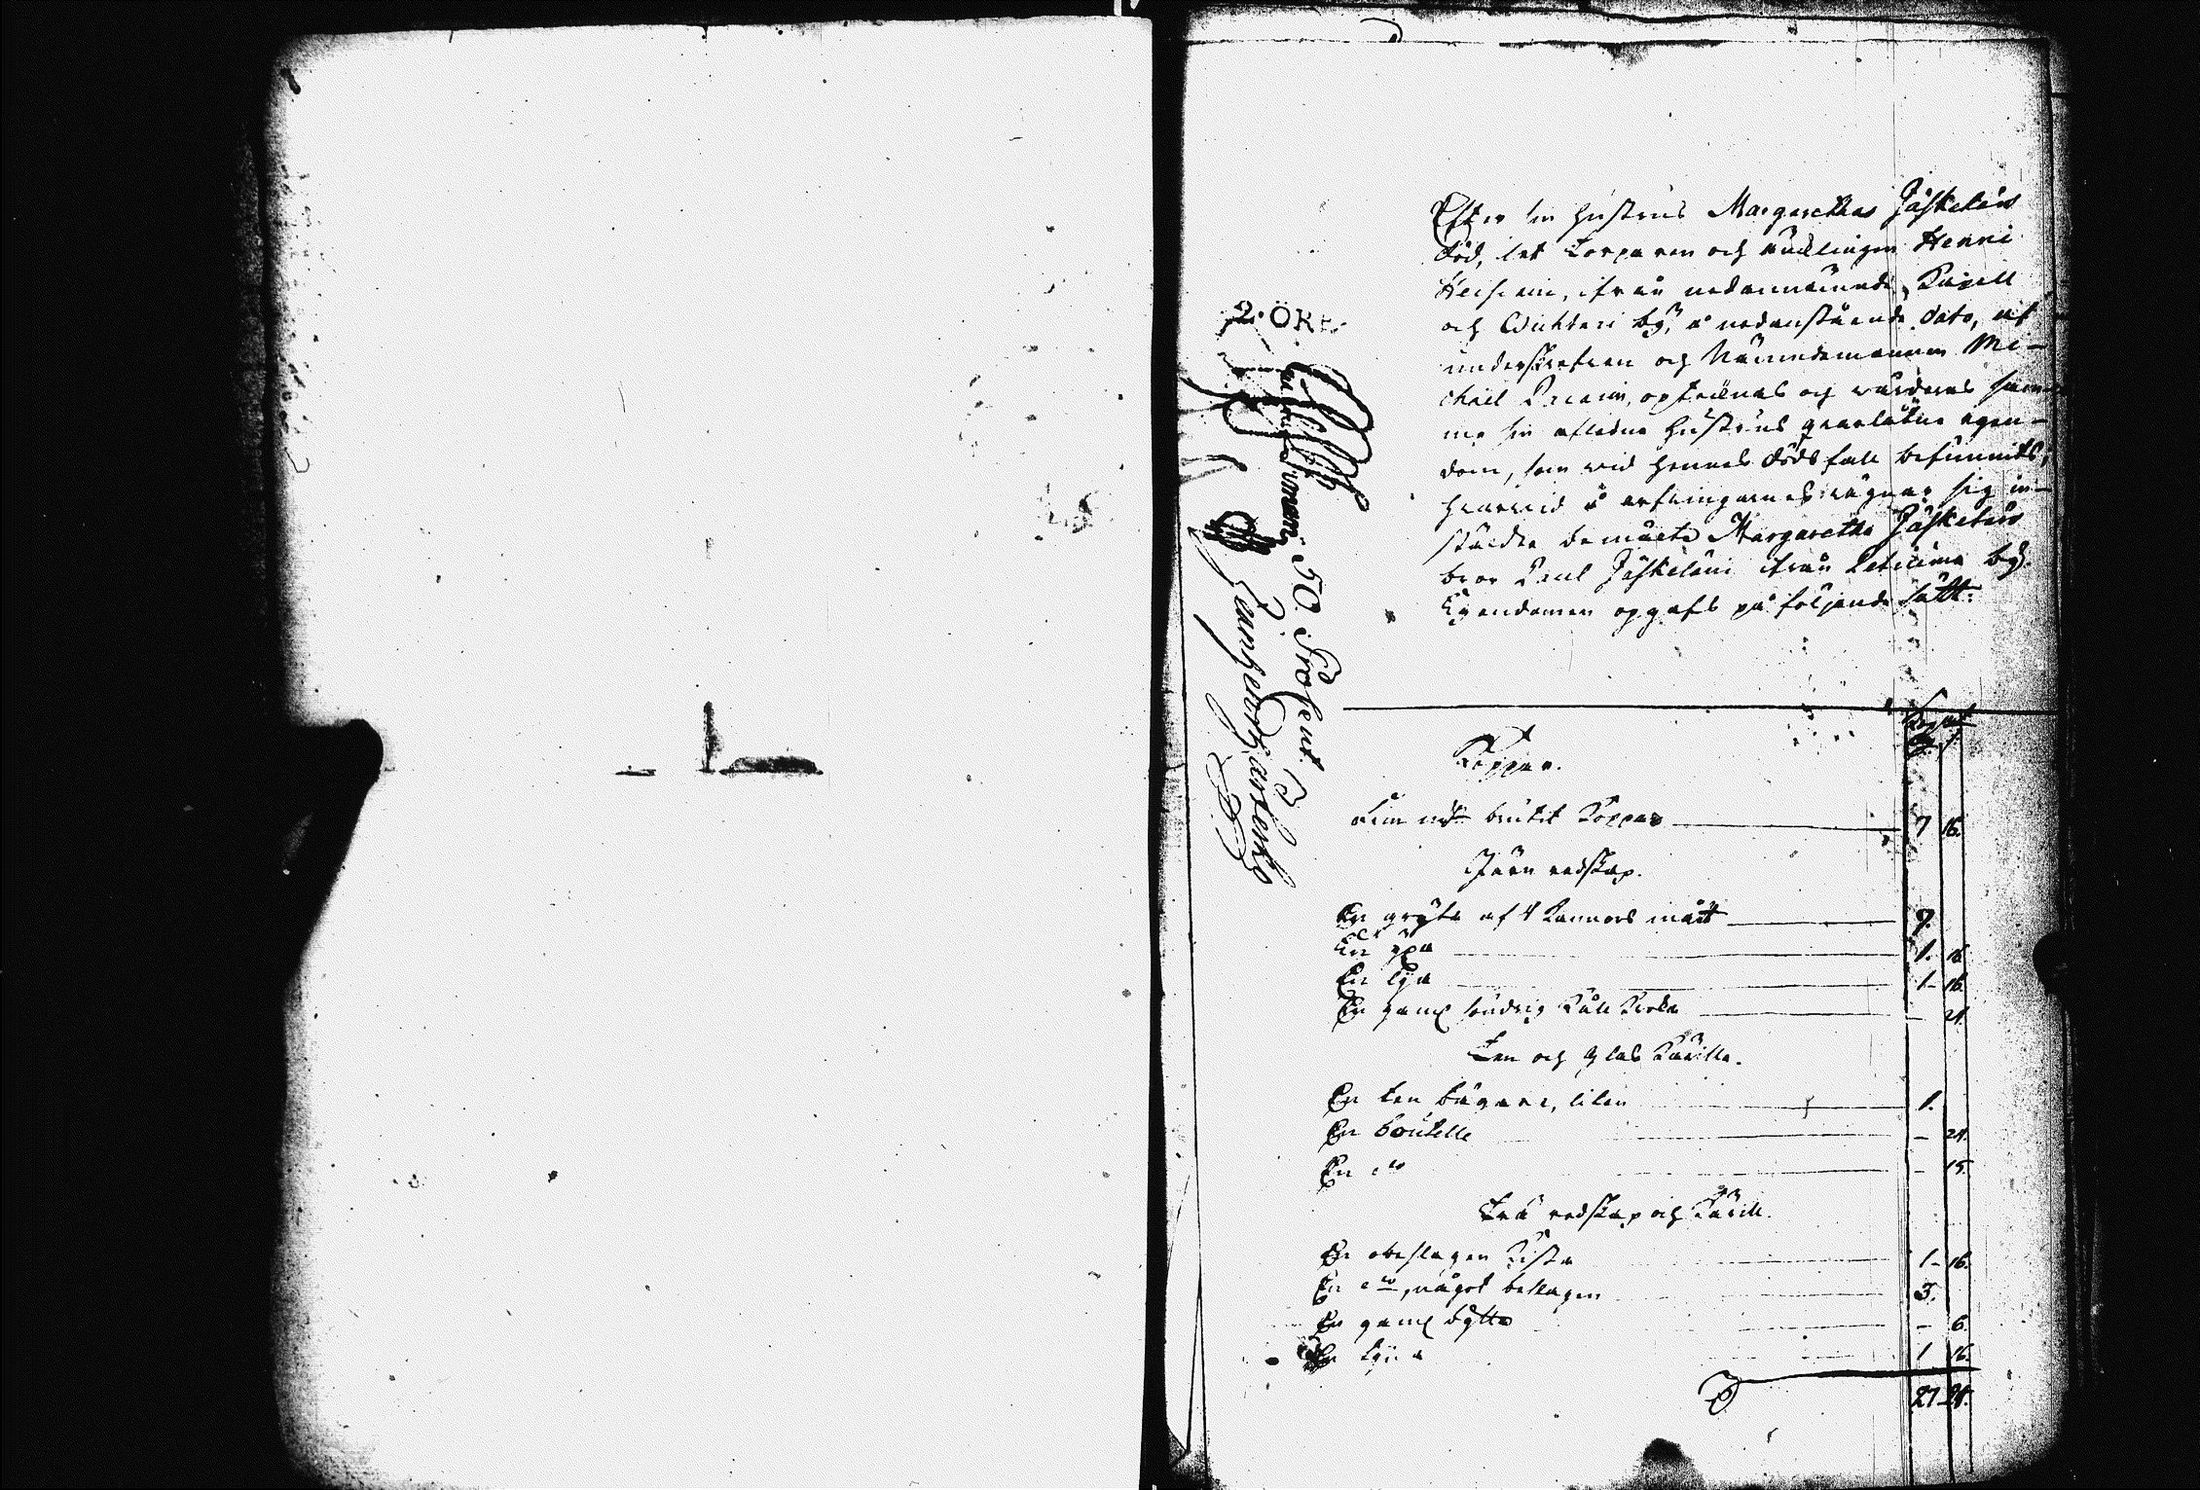 2. ÖRE
50 Procent
Efter sin hustrus Margarethas Jäskeläis
död, let Torparen och ancklingen Henri
ifrån nedannämnde Capell
och by, å nedanstående dato, af
underskrefven och Nämndemannen Mi-
chael opteknas och wärderas sam-
me sin afledna hustrus qvarlåtne egen-
dom, som wid hennes dödsfall befunnits,
hvarvid å arfvingarnes vägnar sig in-
stälde bemälte Margaretha Jäskeläis
bror Paul Jäskeläin ifrån by.
Egendomen opgafs på följande sätt.
Koppar.
brukit Koppar 7 16.
Järn redskap.
En gryta af 4 Kannors mått 7.
En yxa 1. 16
En lya 1 - 16.
En gaml söndrig - 24.
Ten och Glas Kärille.
En ten bägare, liten 1.
En boutelle - 24.
En do - 15.
Trä redskap och Käril.
En obeslagen Kista 1 - 16.
En do, något beslagen 3.
En gaml bytta - 6.
En 1 16.
27 28.